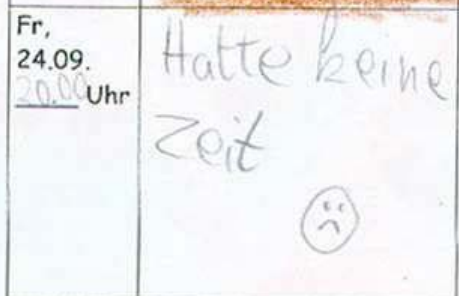 Fr,
24.09.
20.00 Uhr
Hatte keine
Zeit